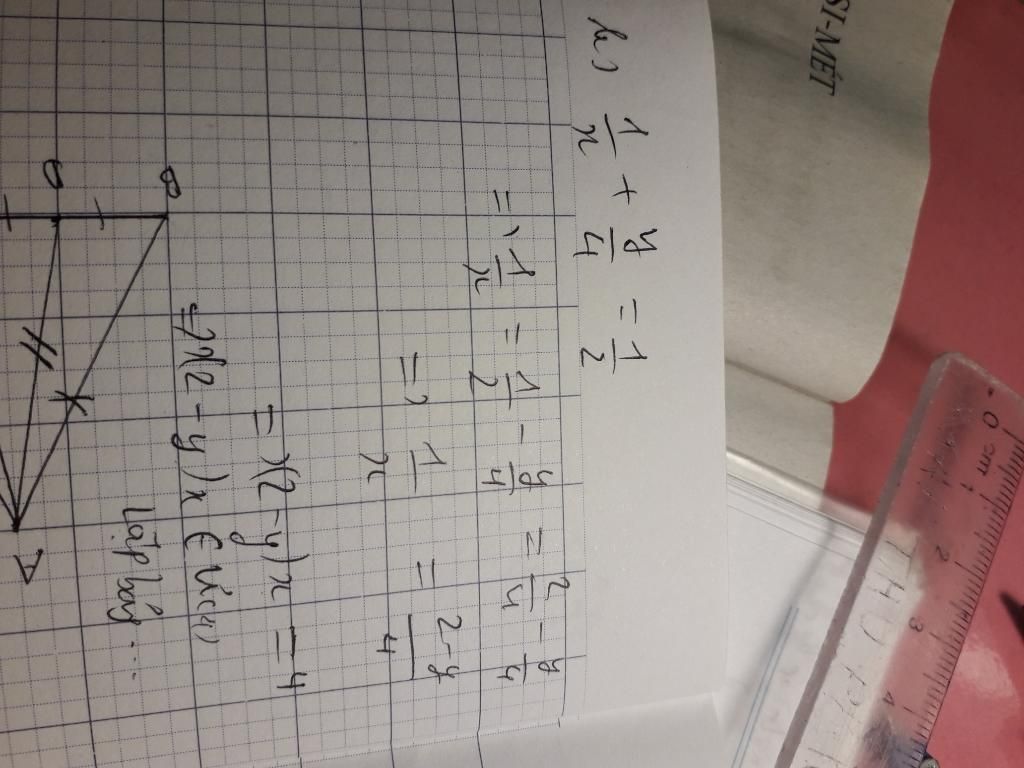 b) 1/x + y/4 = 1/2
=> 1/x = 1/2 - y/4 = 2/4 - y/4
=> 1/x = 2-y/4
=> (2-y)x = 4
=> (2-y)x ∈ Ư(4)
Lập bảng...
B
A
SI-MÉT
0 cm 1 2 3 4